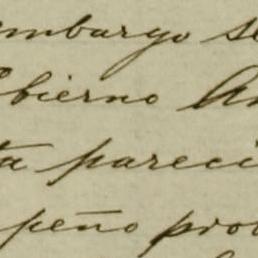 embargo se
obierno An
ta pareci
peño pro